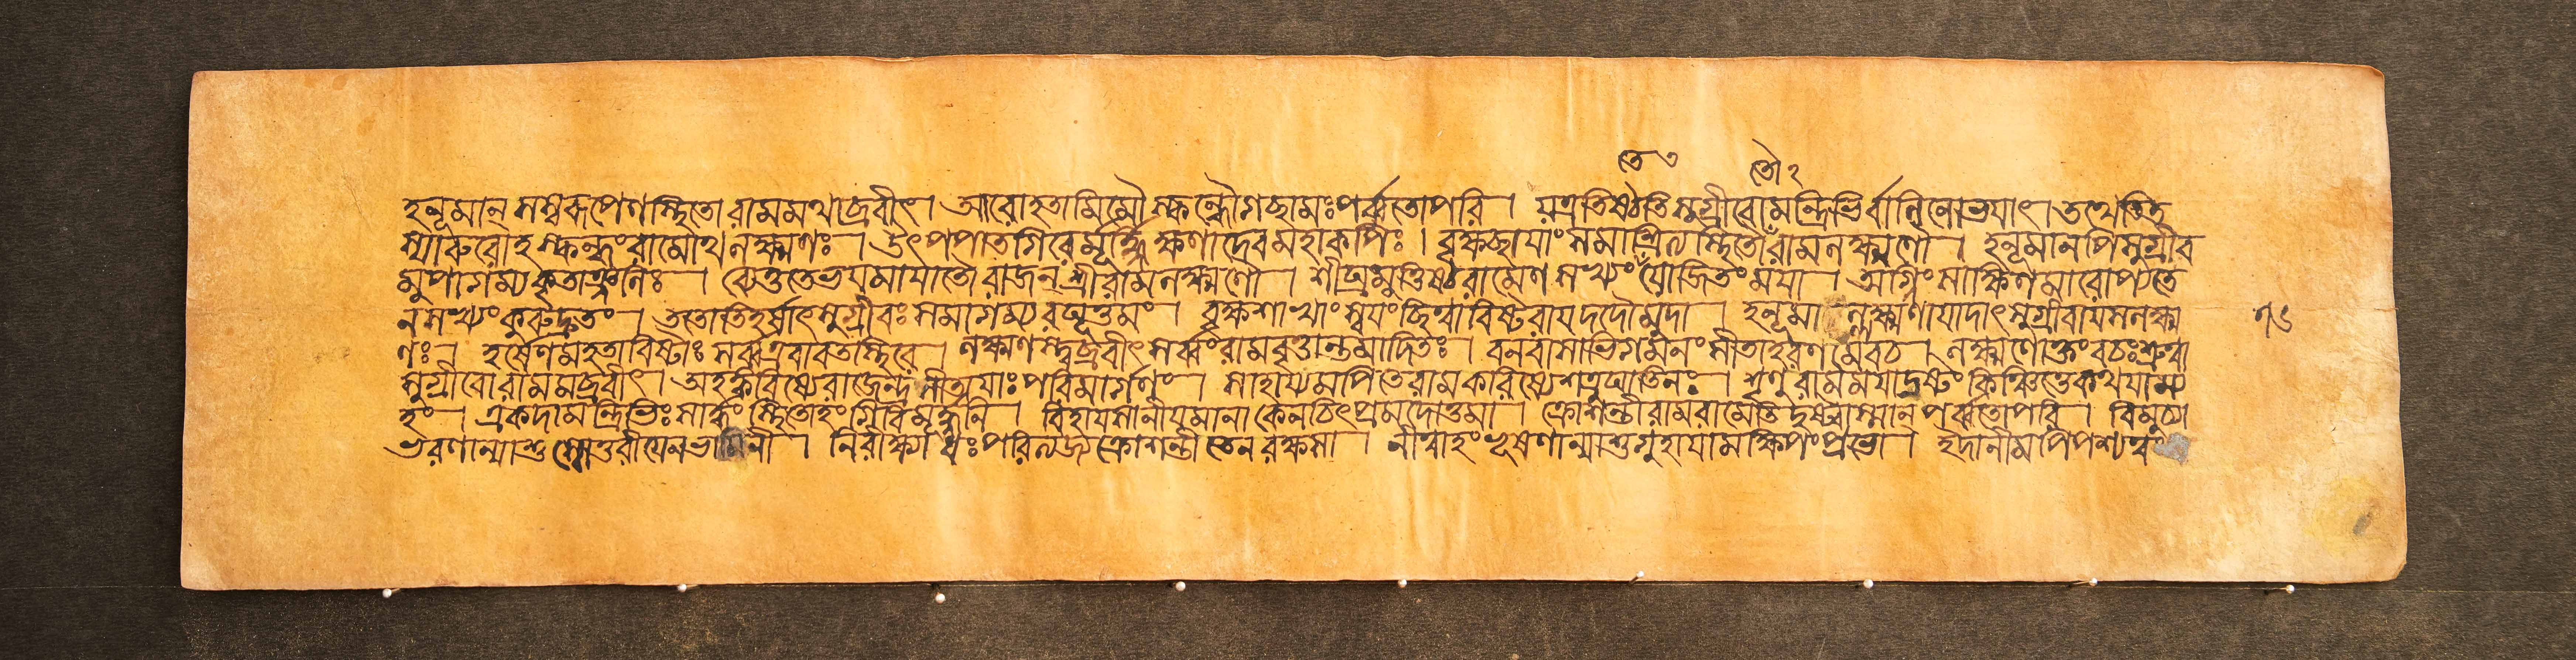 হনূমান্ সস্বরূপেণ স্থিতো রামমথাব্রবীৎ। আরোহতামিমৌ স্কন্ধৌ গচ্ছামঃ পর্ব্বতোপরি। যত্র তিষ্ঠতি সুগ্রীবো মন্ত্রিভির্বালিনো ভয়াৎ। তথেতি ত
স্যারুরোহ স্কন্ধং রামোথ লক্ষ্মণঃ। উৎপপাত গিরের্মূর্দ্ধ্নি ক্ষণাদেব মহাকপিঃ। বৃক্ষচ্ছায়াং সমাশ্রিত্য স্থিতৌ রামলক্ষ্মণৌ। হনূমানপি সুগ্রীব
মুপাগম্য কৃতাঞ্জলিঃ। ব্যেতু তে ভয়মায়াতৌ রাজন্ শ্রীরামলক্ষ্মণৌ। শীঘ্রমুত্তিষ্ঠ রামেণ সখ্যং যোজিতং ময়া। অগ্নিং সাক্ষিণমারোপ্য তে
ন সখ্যং কুরু দ্রুতং। ততোতিহর্ষাৎ সুগ্রীবঃ সমাগম্য রঘূত্তমং। বৃক্ষশাখাং স্বয়ং ছিত্বা বিষ্টরায় দদৌ মুদা। হনূমা ল্লক্ষ্মণায়াদাৎ সুগ্রীবায় স লক্ষ্ম
ণঃ। হর্ষেণ মহতাবিষ্টাঃ সর্ব্ব এবাবতস্থিরে। লক্ষ্মণস্ত্বব্রবীৎ সর্ব্বং রামবৃত্তান্তমাদিতঃ। বনবাসাভিগমনং সীতাহরণমেব চ। লক্ষ্মণোক্তং বচঃ শ্রুত্বা
সুগ্রীবো রামমব্রবীৎ। অহঙ্করিষ্যে রাজেন্দ্র সীতায়াঃ পরিমার্গণং। সাহায্যমপি তে রাম করিষ্যে শত্রুঘাতিনঃ। শৃণু রাম ময়া দৃষ্টং কিঞ্চিত্তে কথয়াম্য
হং। একদা মন্ত্রিভিঃ সার্দ্ধং স্থিতোহং গিরিমূর্দ্ধনি। বিহায়সা নীয়মানা কেনচিৎ প্রমদোত্তমা। ক্রোশন্তী রাম রামেতি দৃষ্ট্বাস্মান্ পর্ব্বতোপরি। বিমুচ্যা
ভরণান্যাশু স্বোত্তরীয়েন ভামিনী। নিরীক্ষ্যাধঃ পরিত্যজ্য ক্রোশন্তী তেন রক্ষসা। নীত্বাহং ভূষণান্যাশু গুহায়ামক্ষিপং প্রভো। ইদানীমপি পশ্য ত্বং